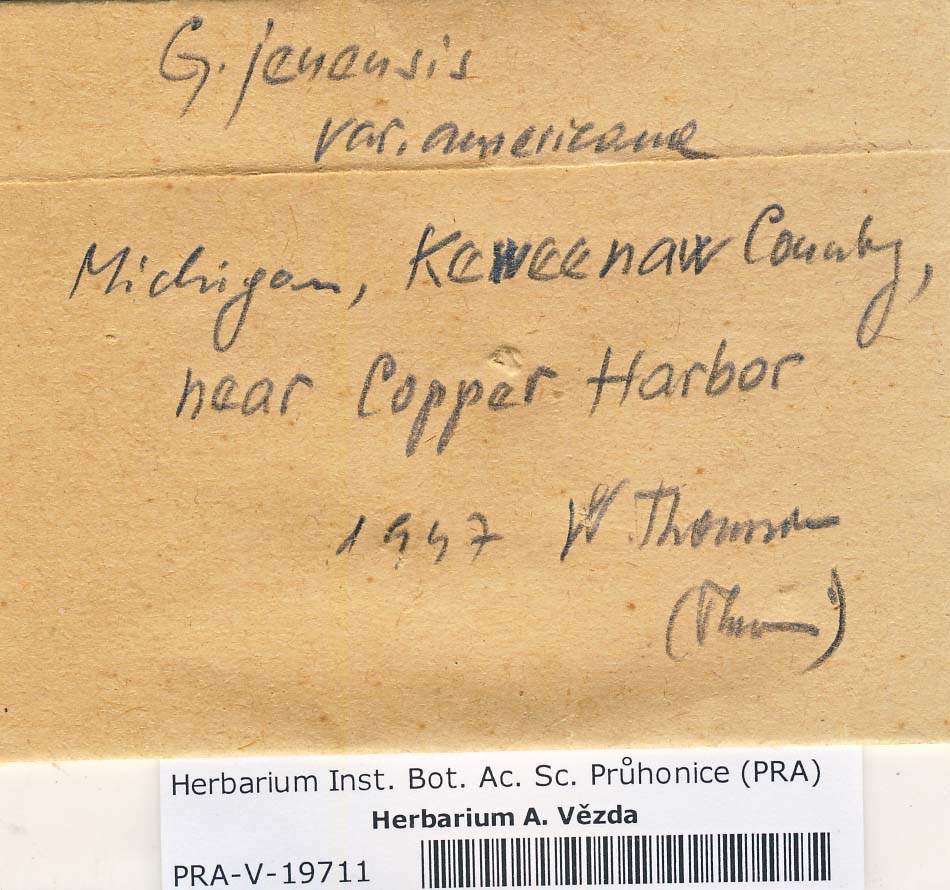 G. jenensis
var. americana
Michigan, Keweenaw County,
near Copper Harbor
1947 W. Thomson
Herbarium Inst. Bot. Ac. Sc. Průhonice (PRA)
Herbarium A. Vězda
PRA-V-19711